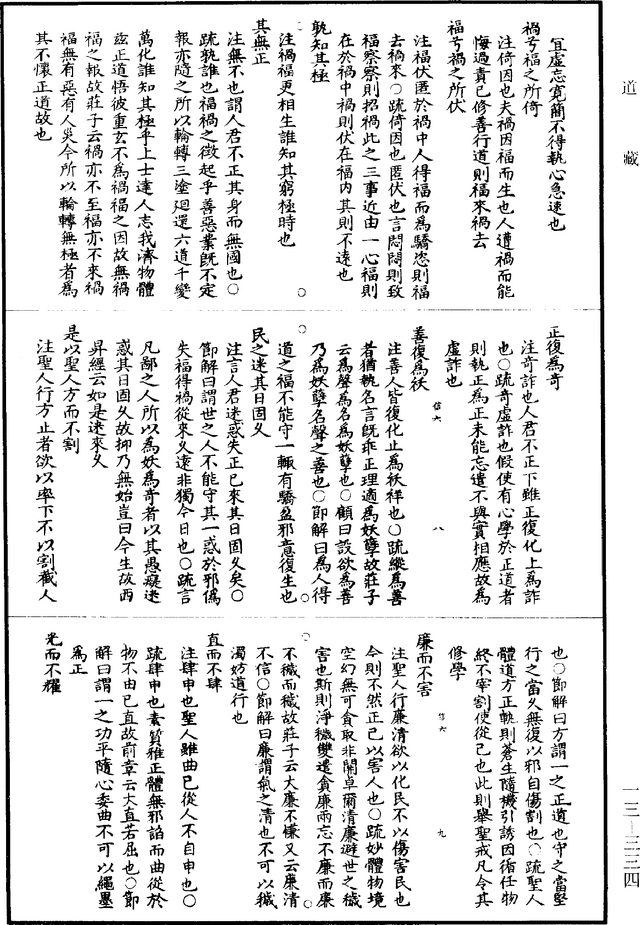 道藏
宜虛忘寬簡不得執心急速也
禍兮福之所倚
注倚因也夫禍因福而生也人遭禍而能
悔過責己修善行道則福來禍去
福兮禍之所伏
注福伏匿於禍中人得福而為驕恣則福
去禍來○疏倚因也匿伏也言悶悶則致
福察察則招禍此之三事近由一心福則
在於禍中禍則伏在福內其則不遠也
孰知其極
注禍福更相生誰知其窮極時也
其無正
注無不也謂人君不正其身而無國也○
疏孰誰也福禍之徵起乎善惡業既不定
報亦隨之所以輪轉三塗迴還六道千變
萬化誰知其極乎上士達人志我濟物體
茲正道悟彼重玄不為禍福之因故無禍
福之報故莊子云禍亦不至福亦不來禍
福無有惡有人災今所以輪轉無極者為
其不懷正道故也
正復為奇
注奇詐也人君不正下雖正復化上為詐
也○疏奇虛詐也假使有心學於正道者
則執正為正未能忘遣不與實相應故為
虛詐也
善復為祅
注善人皆復化上為祅祥也○疏縱為善
者猶執名言既乖正理適為妖孽故莊子
云為聲為名為妖孽也○顧曰設欲為善
乃為妖孽名聲之善也○節解曰為人得
道之福不能守一輒有驕盈邪意復生也
民之迷其日固久
注言人君迷惑失正已來其日固久矣○
節解曰謂世之人不能守其一惑於邪偽
失福得禍從來久遠非獨今日也○疏言
凡鄙之人所以為妖為奇者以其愚癡迷
惑其日固久故抑乃無始豈曰今生故西
昇經云如是迷來久
是以聖人方而不割
注聖人行方止者欲以率下不以割截人
也○節解曰方謂一之正道也守之當堅
行之當久無復以邪自傷割也○疏聖人
體道方正軌則蒼生隨機引誘因循任物
終不宰割使從己也此則舉聖戒凡令其
修學
廉而不害
注聖人行廉清欲以化民不以傷害民也
今則不然正己以害人也○疏妙體物境
空幻無可貪取非關卓爾清廉避世之穢
害也斯則淨穢雙遣貪廉兩忘不廉而廉
不穢而穢故莊子云大廉不慊又云廉清
不信○節解曰廉謂氣之清也不可以穢
濁妨道行也
直而不肆
注肆申也聖人雖曲己從人不自申也○
疏肆申也素質雅正體無邪諂而曲從於
物不由己直故前章云大直若屈也○節
解曰謂一之功平隨心委曲不可以繩墨
為正
光而不耀
信六
八
信六
九
一三—三三四